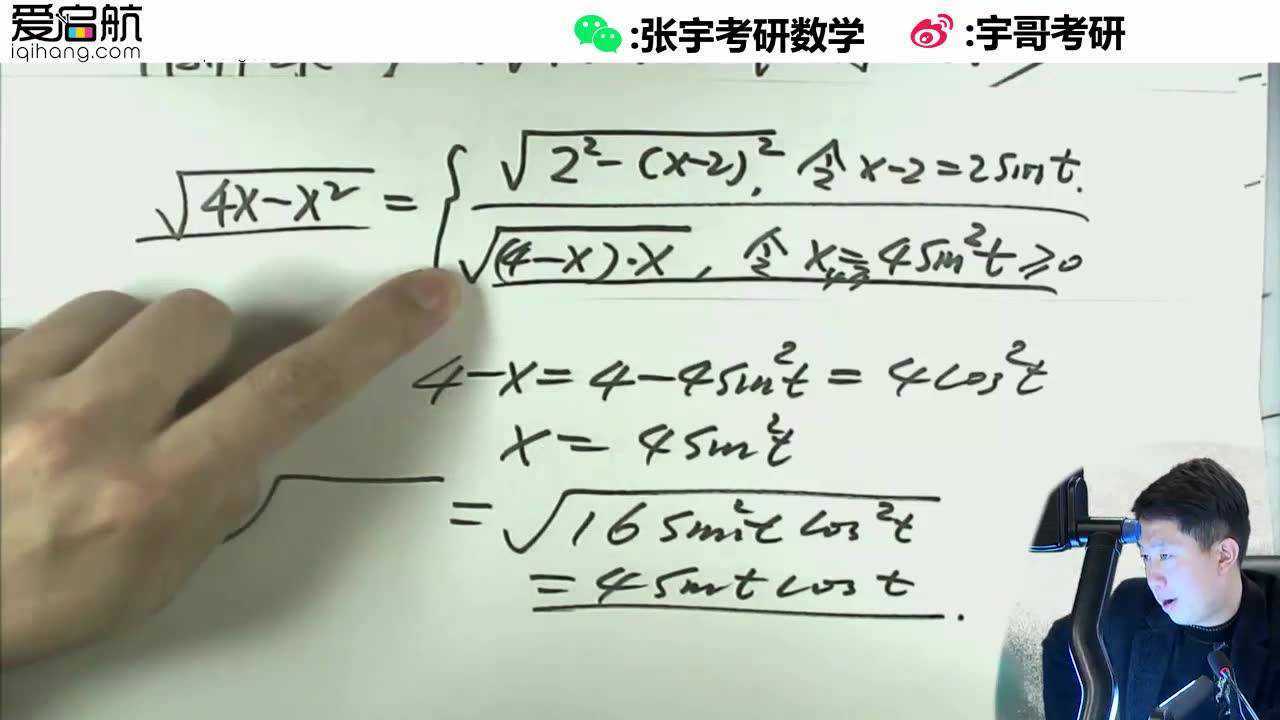 爱启航
iqihang.com
:张宇考研数学
:宇哥考研
√(4x-x²) = { √(2²-(x-2)²), 令 x-2=2sint.
√((4-x)·x), 令 x=4sin²t≥0
4-x=4-4sin²t=4cos²t
x=4sin²t
√ = √(16sin²tcos²t)
=4sintcost.